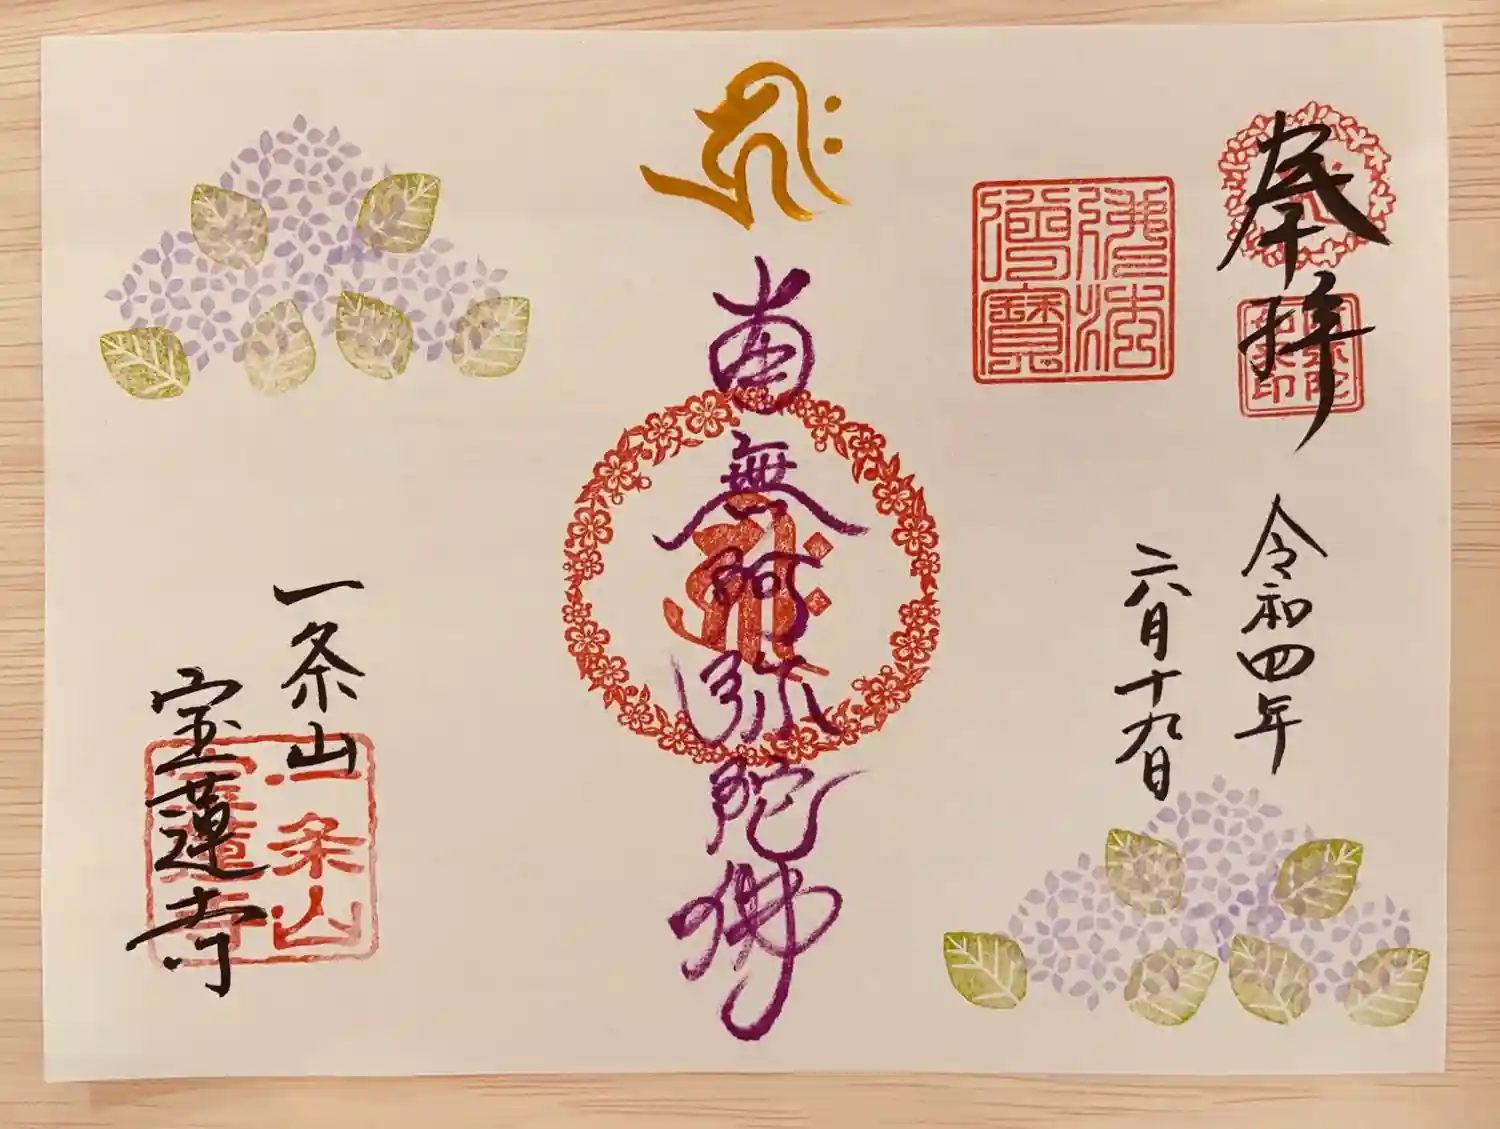 奉拝
令和四年
六月十九日
佛法僧寳
𑖮𑖿𑖨𑖱𑖾
南無阿弥陀佛
𑖮𑖿𑖨𑖱𑖾
一条山
宝蓮寺
一条山
宝蓮寺